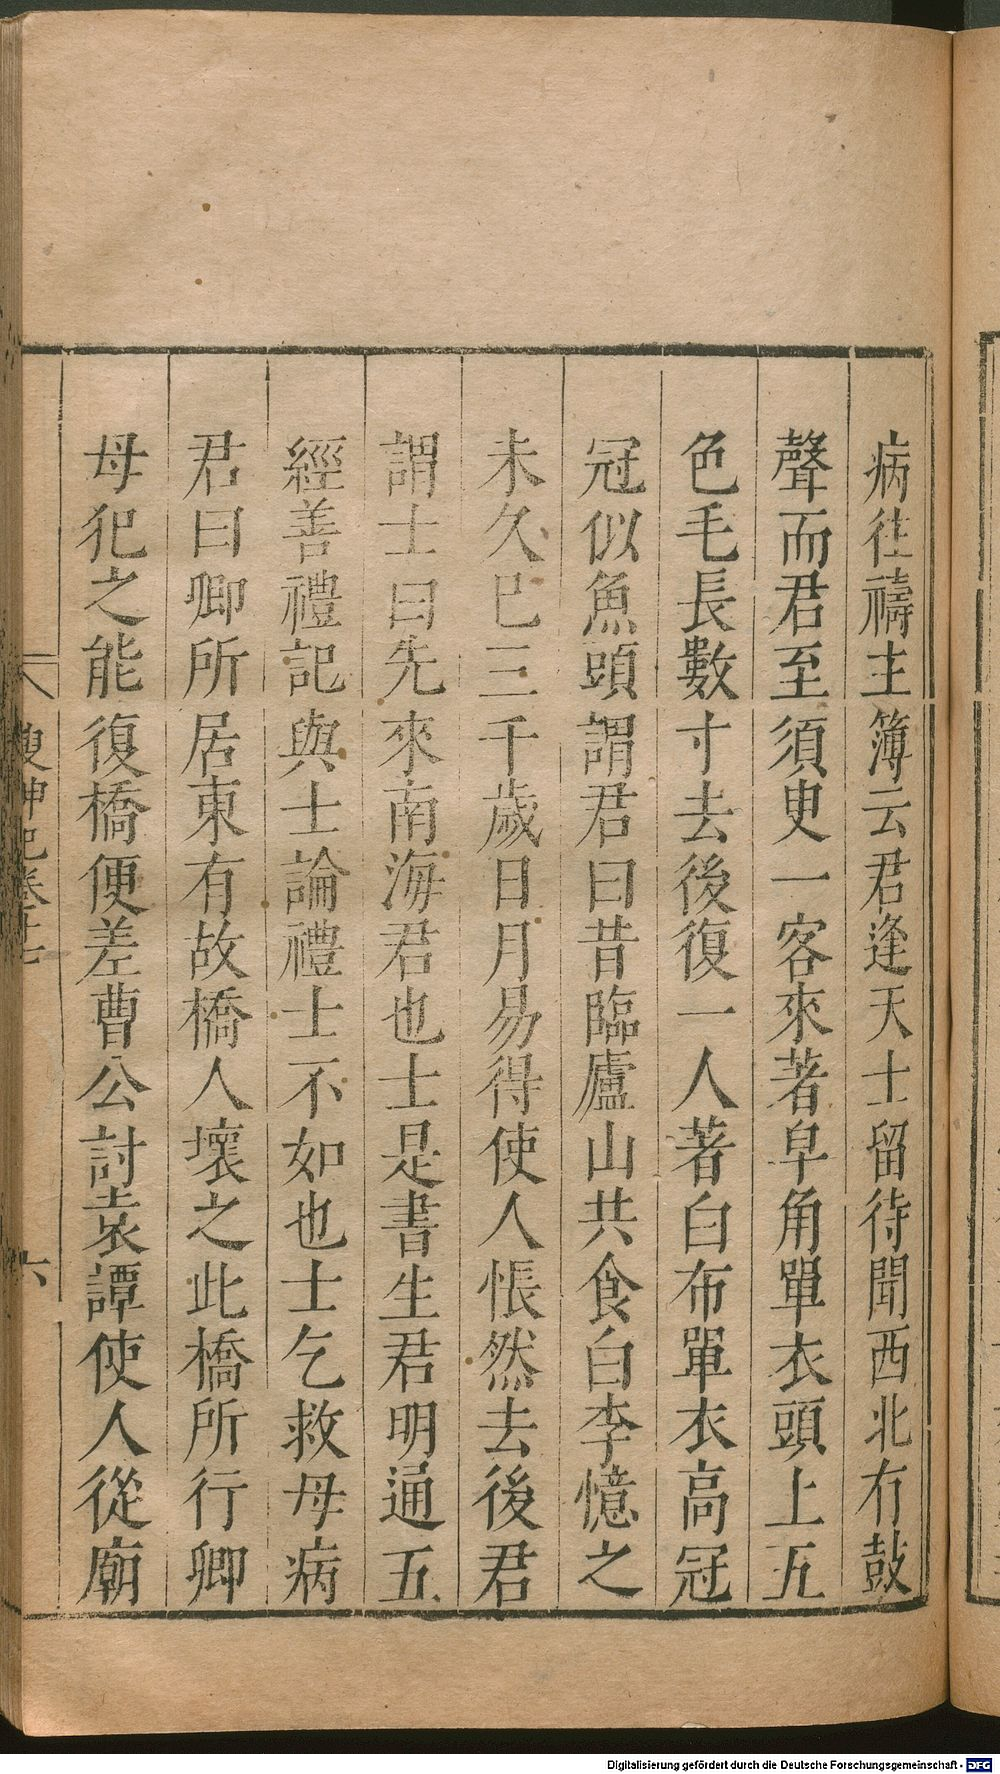 病往禱主簿云君逢天士留待聞西北有鼓
聲而君至須臾一客來著皁角單衣頭上五
色毛長數寸去後復一人著白布單衣高冠
冠似魚頭謂君曰昔臨廬山共食白李憶之
未久已三千歲日月易得使人悵然去後君
謂士曰先來南海君也士是書生君明通五
經善禮記與士論禮士不如也士乞救母病
君曰卿所居東有故橋人壞之此橋所行卿
母犯之能復橋便差曹公討袁譚使人從廟
搜神記卷十七
六
Digitalisierung gefördert durch die Deutsche Forschungsgemeinschaft - DFG